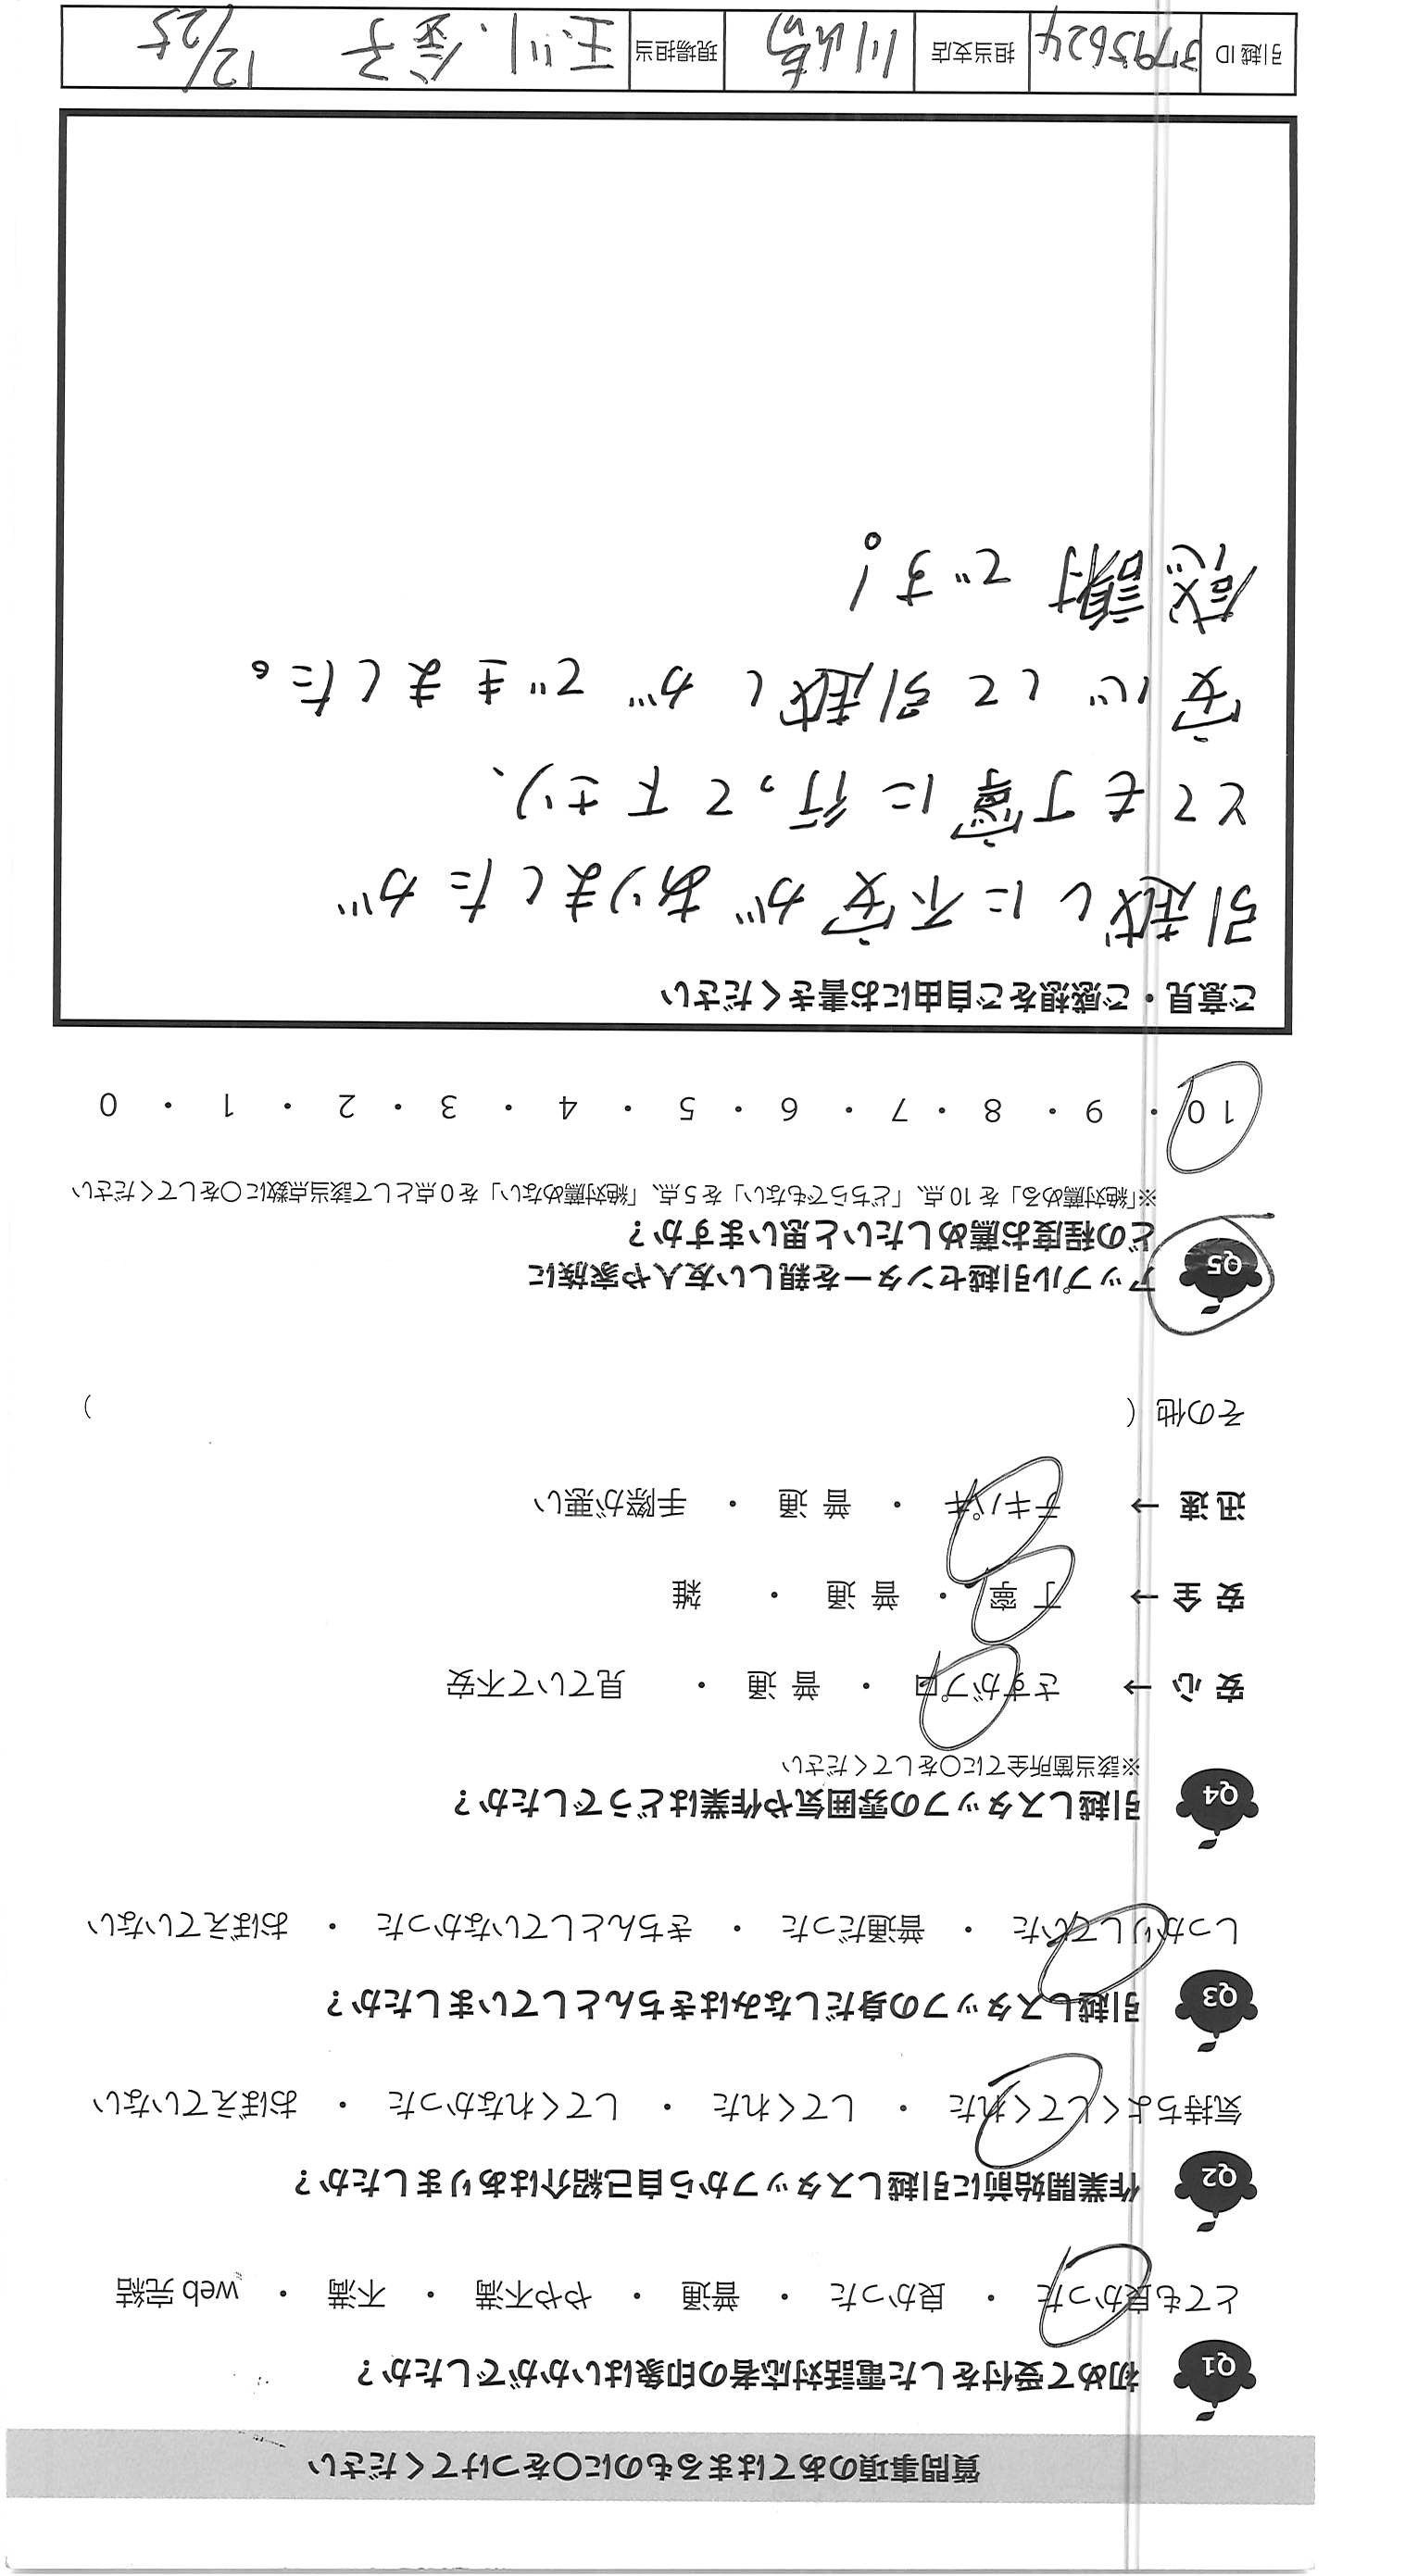 質問事項のあてはまるものに〇をつけてください
Q1 初めて受付をした電話対応者の印象はいかがでしたか？
とても良かった ・ 良かった ・ 普通 ・ やや不満 ・ 不満 ・ web 完結
Q2 作業開始前に引越しスタッフから自己紹介はありましたか？
気持ちよくしてくれた ・ してくれた ・ してくれなかった ・ おぼえていない
Q3 引越しスタッフの身だしなみはきちんとしていましたか？
しっかりしていた ・ 普通だった ・ きちんとしていなかった ・ おぼえていない
Q4 引越しスタッフの雰囲気や作業はどうでしたか？
※該当箇所全てに〇をしてください
安心 → さすがプロ ・ 普通 ・ 見ていて不安
安全 → 丁寧 ・ 普通 ・ 雑
迅速 → テキパキ ・ 普通 ・ 手際が悪い
その他（ ）
Q5 アップル引越センターを親しい友人や家族に
どの程度お薦めしたいと思いますか？
※「絶対薦める」を10点、「どちらでもない」を5点、「絶対薦めない」を0点として該当点数に〇をしてください
10 ・ 9 ・ 8 ・ 7 ・ 6 ・ 5 ・ 4 ・ 3 ・ 2 ・ 1 ・ 0
ご意見・ご感想をご自由にお書きください
引越しに不安がありましたが
とても丁寧に行って下さり、
安心して引越しができました。
感謝です！
引越ID 3795624 担当支店 川崎 現場担当 玉川、金子 12/25